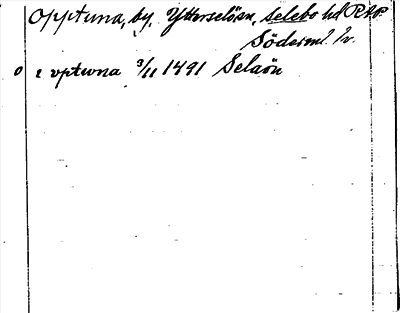 Opptuna, by, Ytterselösn, Selebo hd RAP.
Söderml. lv.
0 i vptwna 3/11 1491 Selaön